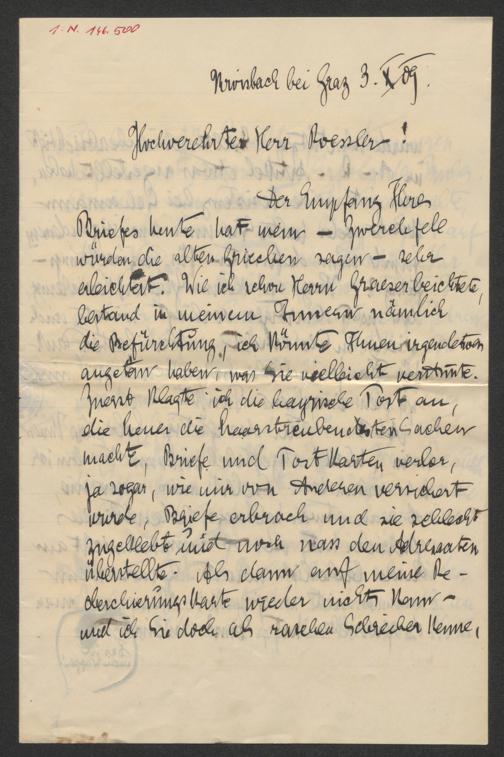 1. N. 146.500
Kroisbach bei Graz 3. X 09.
Hochverehrter Herr Roessler!
Der Empfang Ihres
Briefes heute hat mein – Zwerchfell
würden die alten Griechen sagen – sehr
erleichtert. Wie ich schon Herrn Graeser beichtete,
bestand in meinem Innern nämlich
die Befürchtung, ich könnte Ihnen irgendetwas
angetan haben, was Sie vielleicht verstimmte.
Zuerst klagte ich die bayrische Post an,
die heuer die haarsträubendsten Sachen
machte, Briefe und Postkarten verlor,
ja sogar, wie mir von Anderen versichert
wurde, Briefe erbrach und sie schlecht
zugeklebt und noch nass den Adressaten
überstellte. Als dann auf meine Re-
cherchierungskarte wieder nichts kam –
und ich Sie doch als raschen Schreiber kenne,